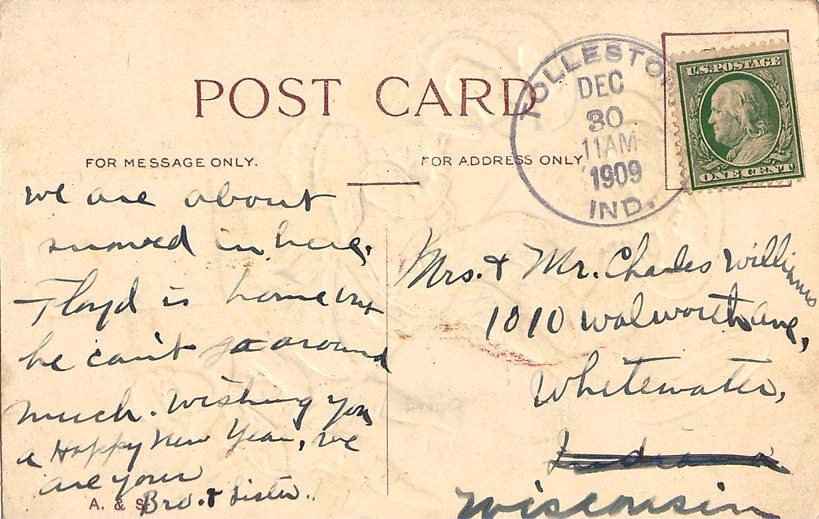 POST CARD
FOR MESSAGE ONLY.
FOR ADDRESS ONLY
TOLLESTO
DEC
30
11AM
1909
IND.
U.S. POSTAGE
ONE CENT
we are about
snowed in here,
Floyd is home but
he can't go around
much. Wishing you
a Happy New Year, we
are your
Bro. & Sister.
A. & S.
Mrs. & Mr. Charles Williams
1010 Walworth Ave,
Whitewater,
Indiana
Wisconsin